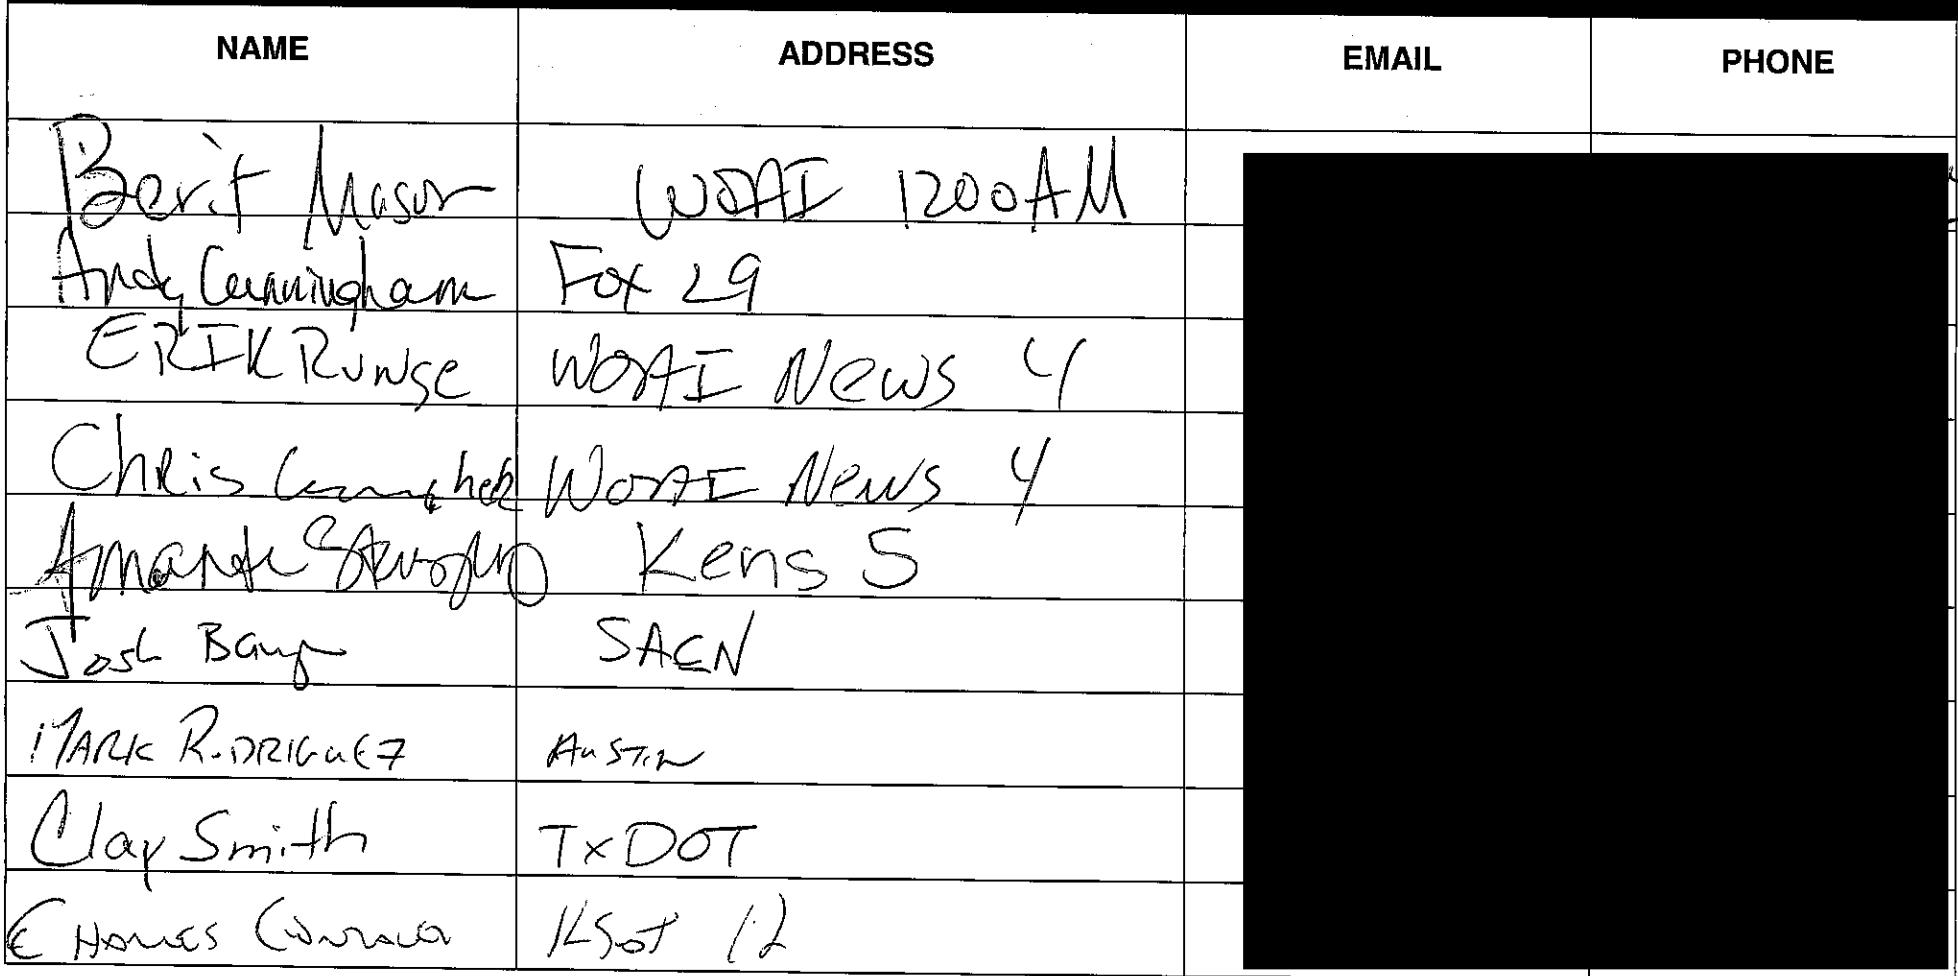 NAME ADDRESS EMAIL PHONE
Berit Mason WOAI 1200AM
Andy Cunningham Fox 29
ERIK RUNGE WOAI News 4
Chris WOAI News 4
Amanda Kens 5
Josh Baugh SAEN
MARK RODRIGUEZ AUSTIN
Clay Smith TxDOT
12